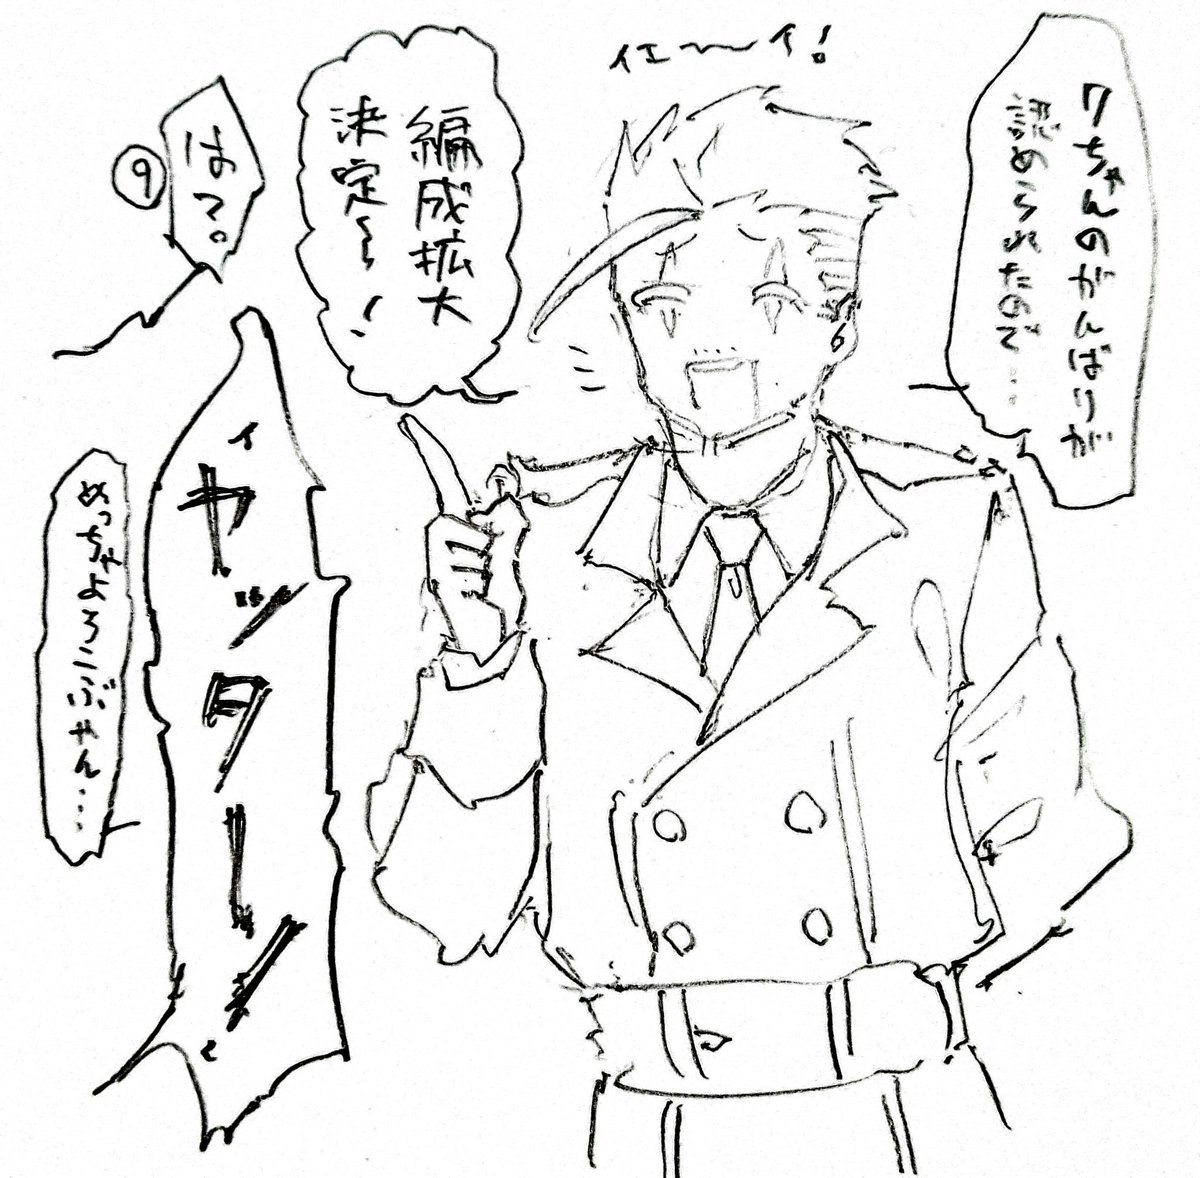 7ちゃんのがんばりが
認められたので…
イエ〜イ!
編成拡大
決定〜!
はて。
⑨
イヤッターッ
めっちゃよろこぶやん…